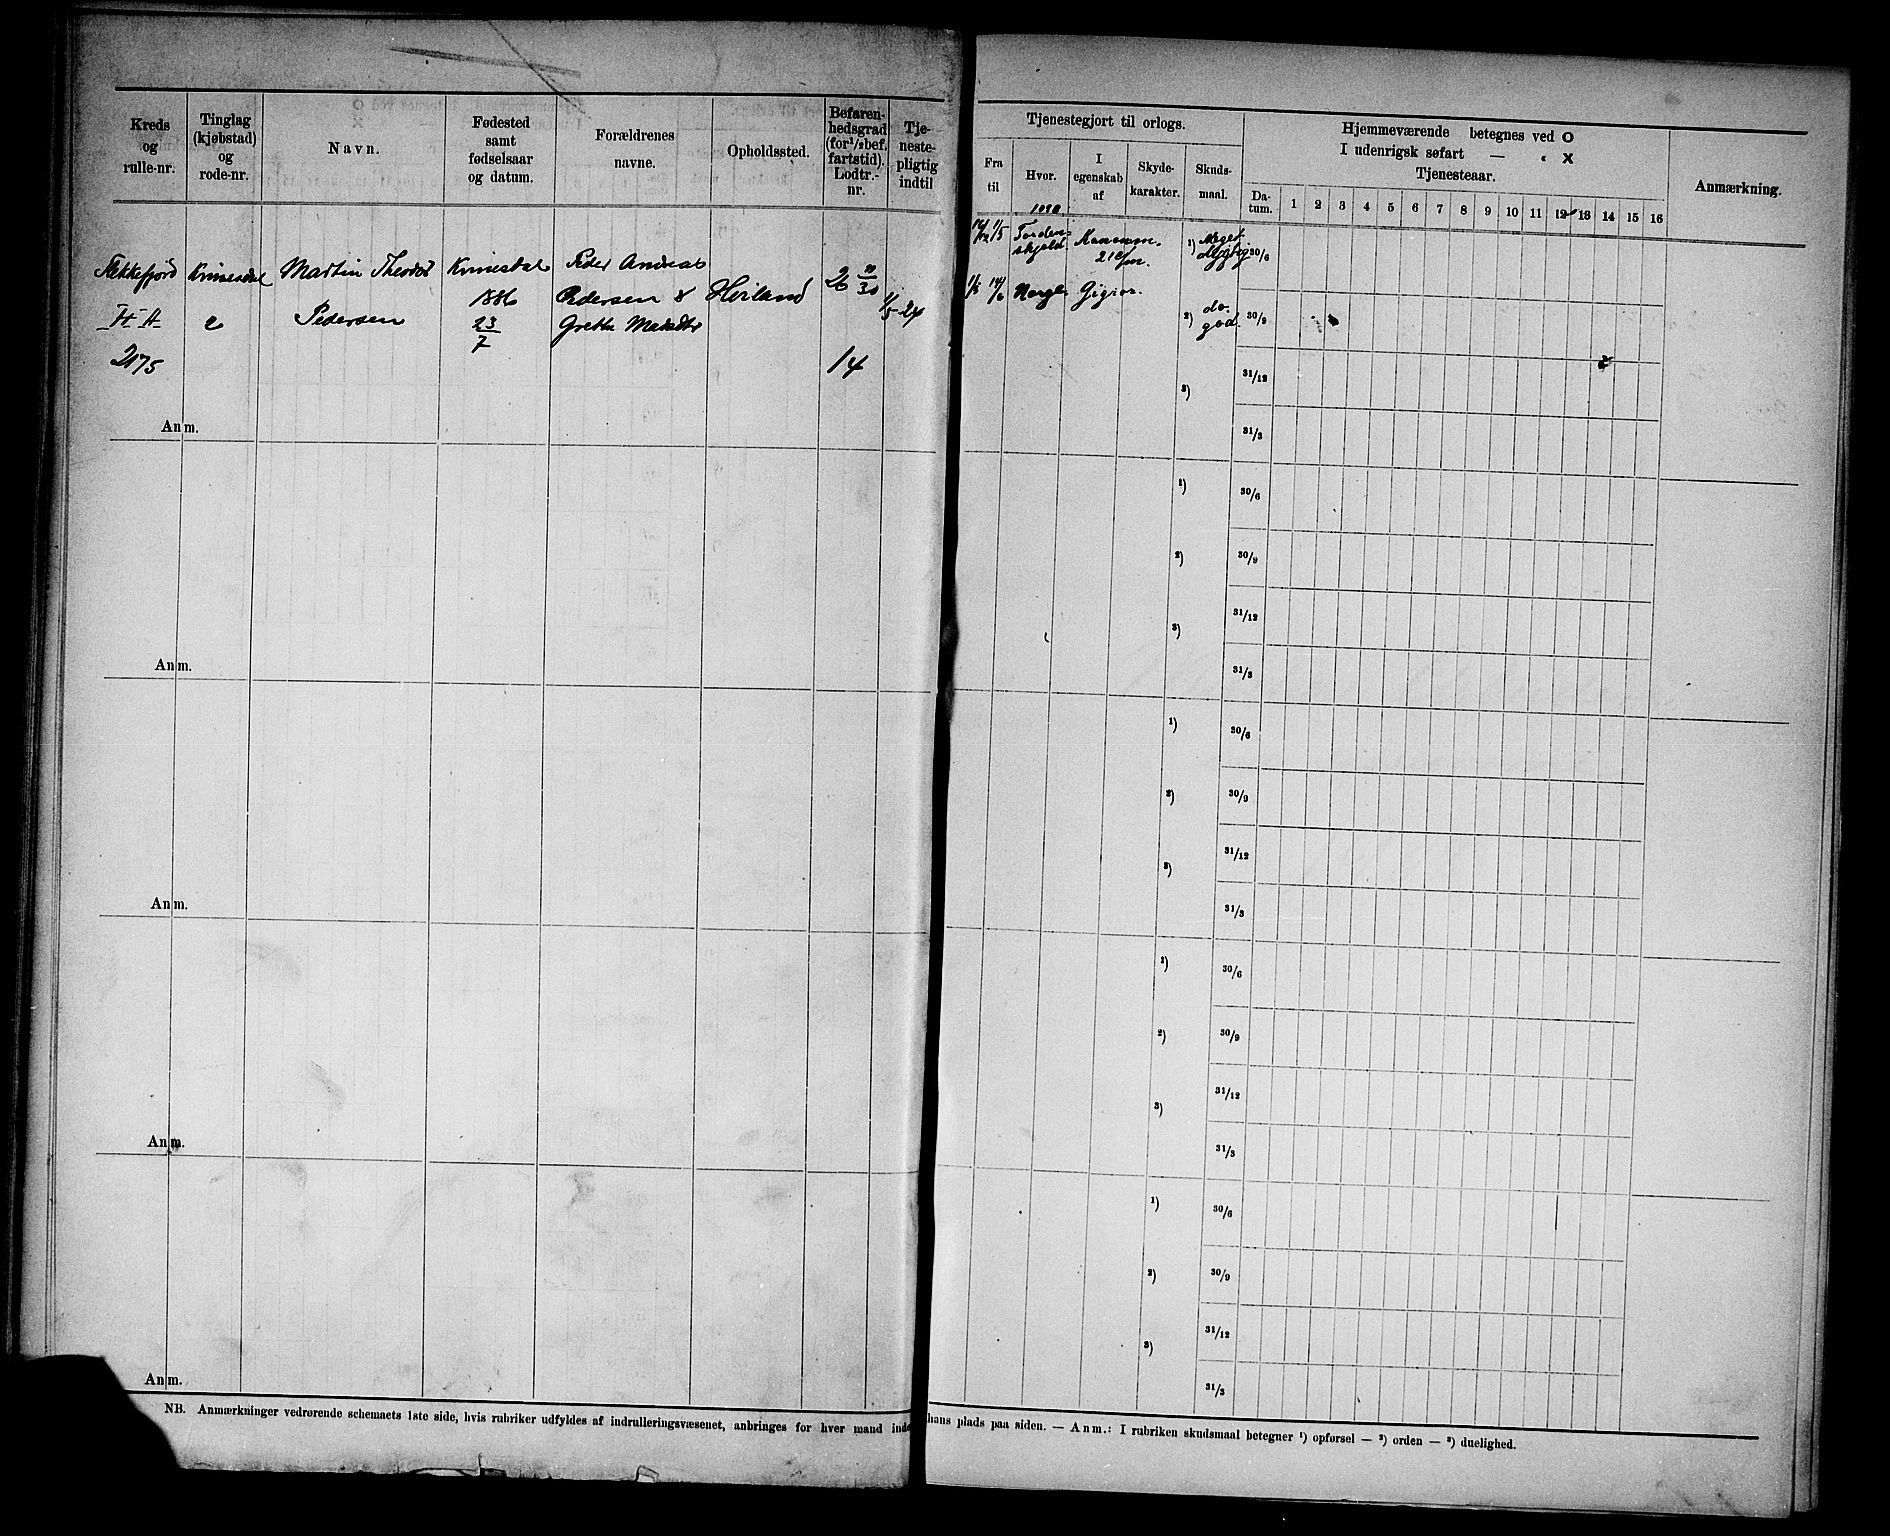 Kreds
og
rulle-nr.
Tinglag
(kjøbstad)
og
rode-nr.
Navn.
Fødested
samt
fødselsaar
og datum.
Forældrenes
navne.
Opholdssted.
Befaren-
hedsgrad
(for 1/2 bef.
fartstid).
Lodtr.-
nr.
Tje-
neste-
pligtig
indtil
Flekkefjord
H A
2175
Kvinesdal
2
Martin Theodor
Pedersen
Kvinesdal
1886
23/7
Peder Andreas
Pedersen &
Grethe
26 11/30
14
1/5 24
Anm.
Anm.
Anm.
Anm.
Anm.
NB. Anmærkninger vedrørende schemaets 1ste side, hvis rubriker udfyldes af indrulleringsvæsenet, anbringes for hver mand inde
Tjenestegjort til orlogs.
Fra
til
Hvor.
I
egenskab
af
Skyde-
karakter.
Skuds-
maal.
Hjemmeværende betegnes ved O
I udenrigsk søfart — „ X
Tjenesteaar.
Da-
tum.
1 2 3 4 5 6 7 8 9 10 11 12 13 14 15 16
Anmærkning.
1/5
Torden-
skjold
Kanonm.
21 c/m.
1) Meget
30/6
1/5 14/6 Norge
2) do.
god.
30/9
3)
31/12
31/3
1)
30/6
2)
30/9
3)
31/12
31/3
1)
30/6
2)
30/9
3)
31/12
31/3
1)
30/6
2)
30/9
3)
31/12
31/3
1)
30/6
2)
30/9
3)
31/12
31/3
hans plads paa siden. — Anm.: I rubriken skudsmaal betegner 1) opførsel — 2) orden — 3) duelighed.